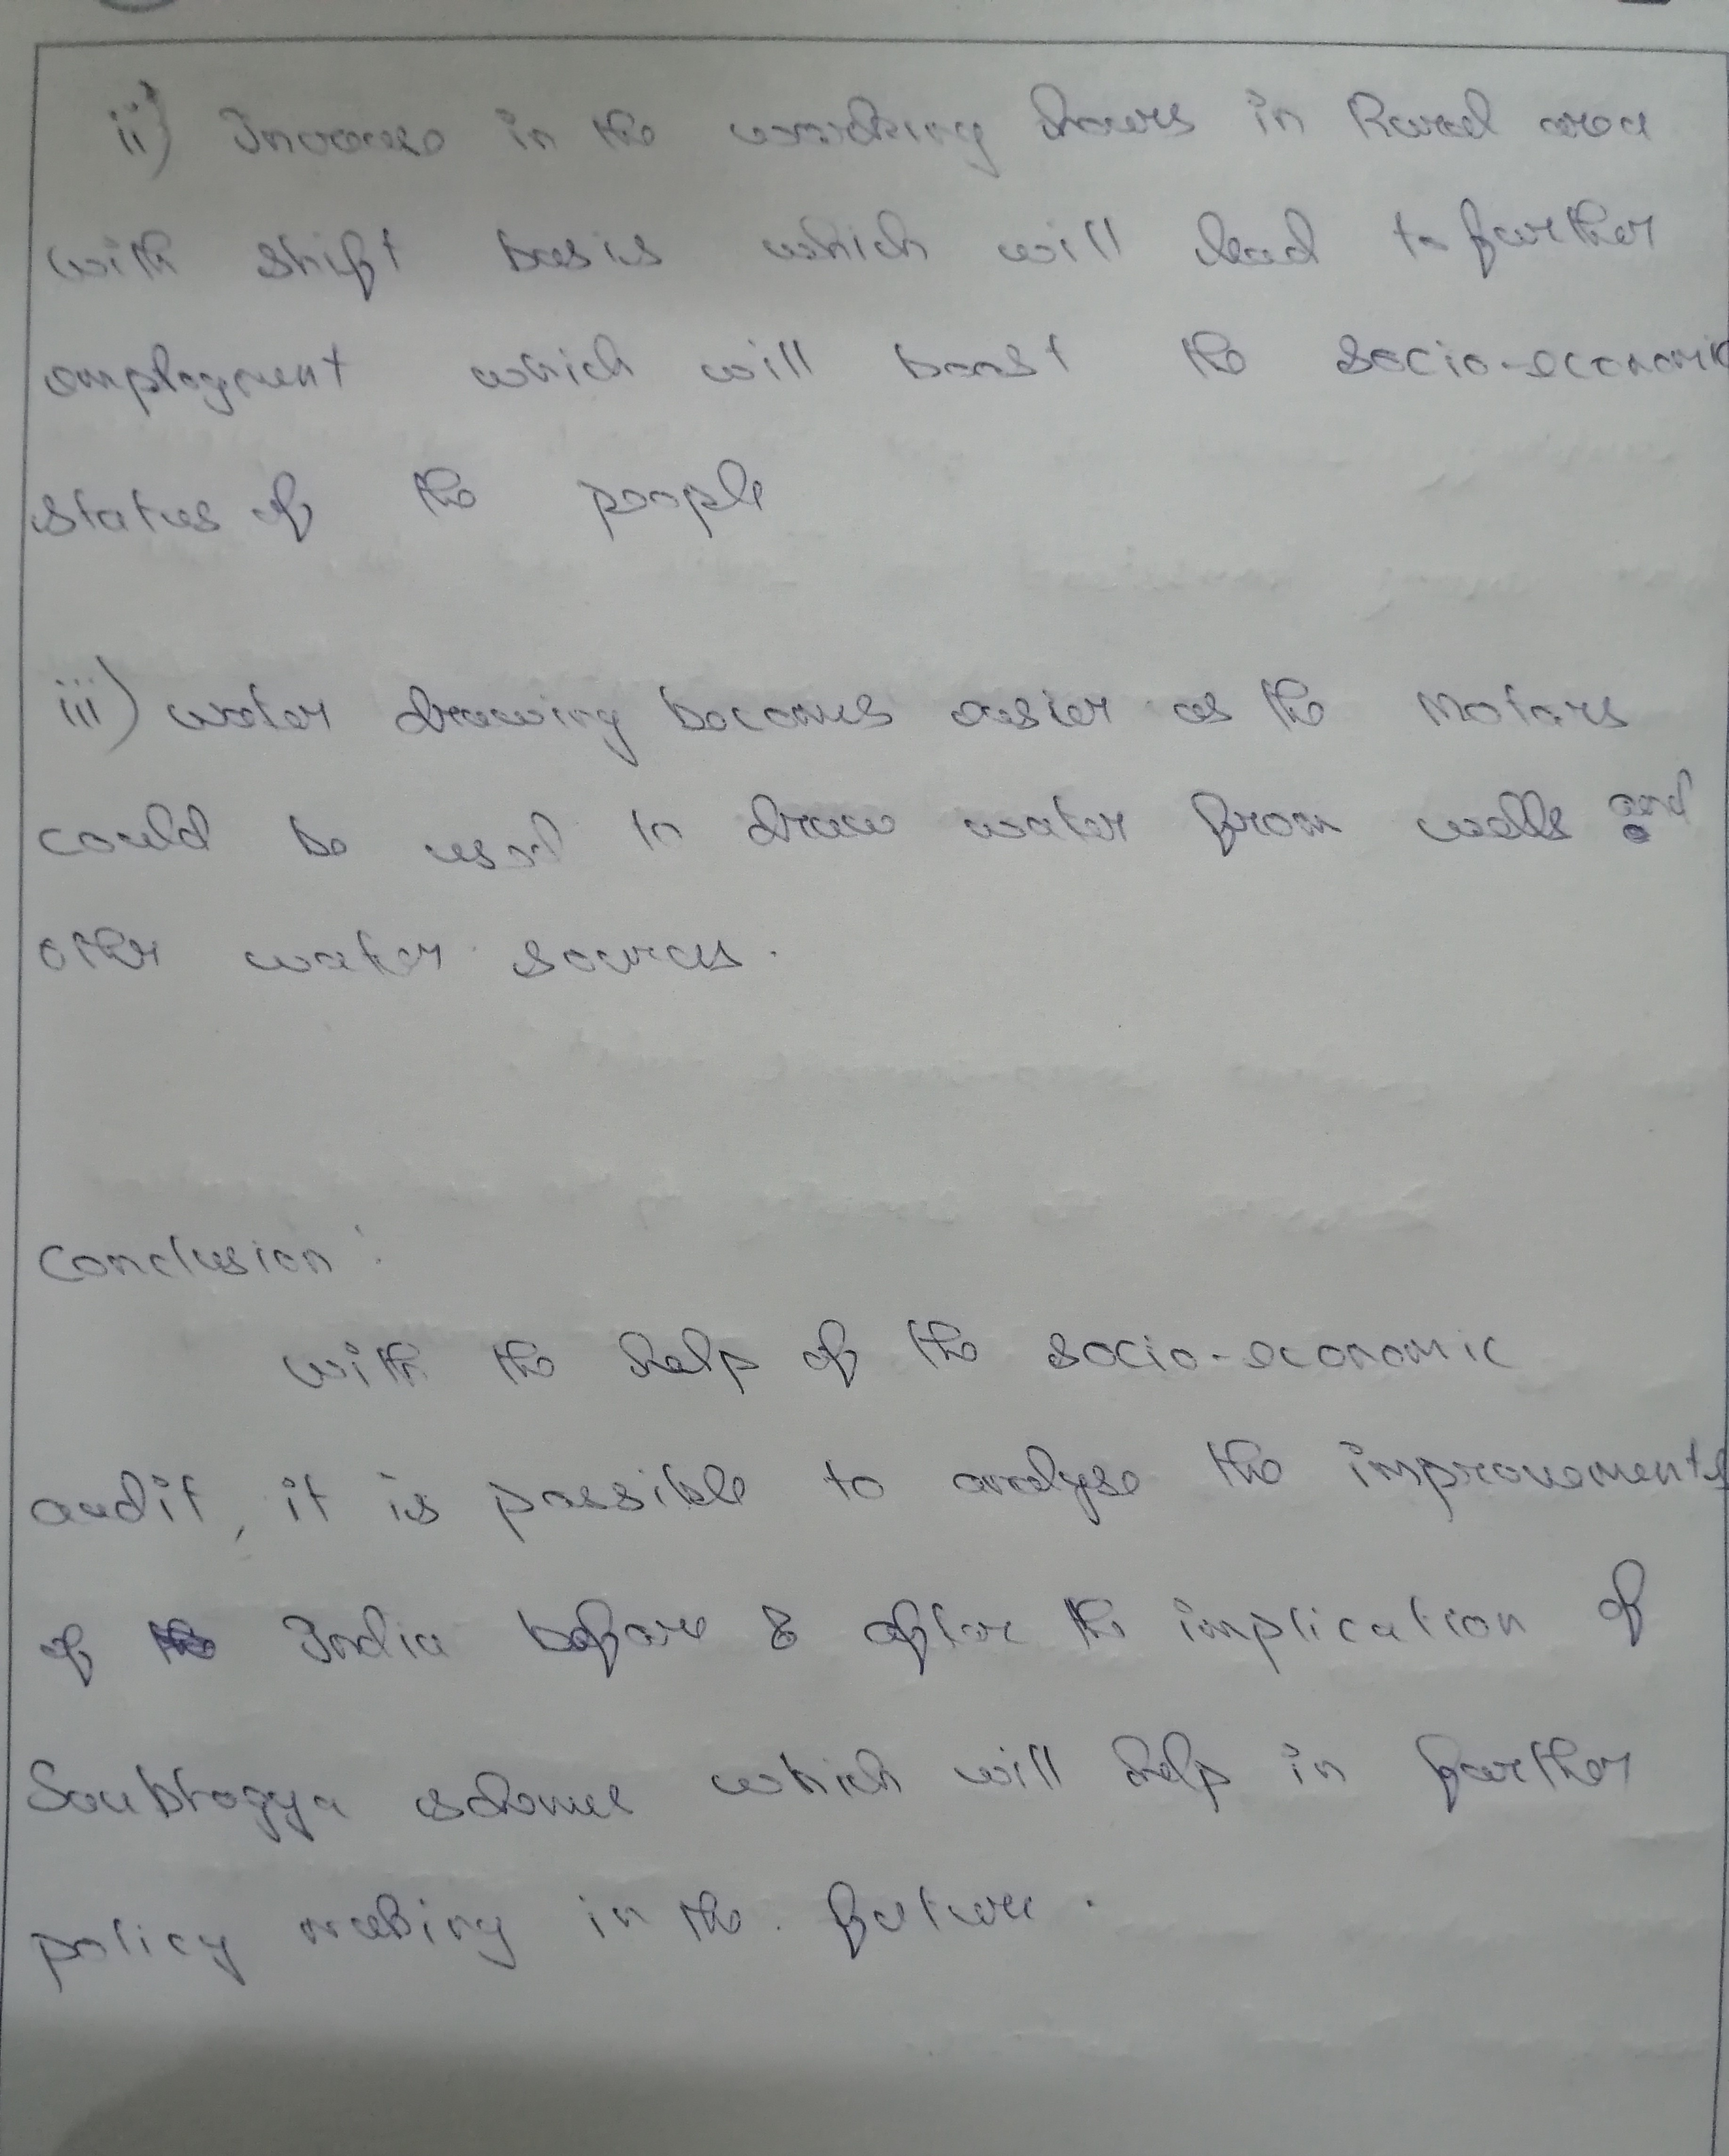 ii) Increase in the working hours in Rural area
with shift basis which will lead to further
employment which will boost the socio-economic
status of the people
iii) water drawing becomes easier as the Motors
could be used to draw water from wells and
other water sources.
Conclusion:
with the help of the socio-economic
audit, it is possible to analyse the improvements
of India before & after the implication of
Soubhagya scheme which will help in further
policy making in the future.